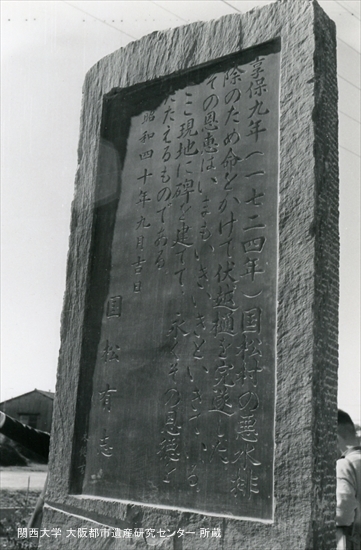 享保九年(一七二四年)国松村の悪水排
除のため命とかけて伏越樋を完遂した
ての恩恵はいまもいきいきといきている
ここ現地に碑を建てて永くその恩徳を
たたえるものである
昭和四十年九月吉日
国松有志
関西大学 大阪都市遺産研究センター 所蔵